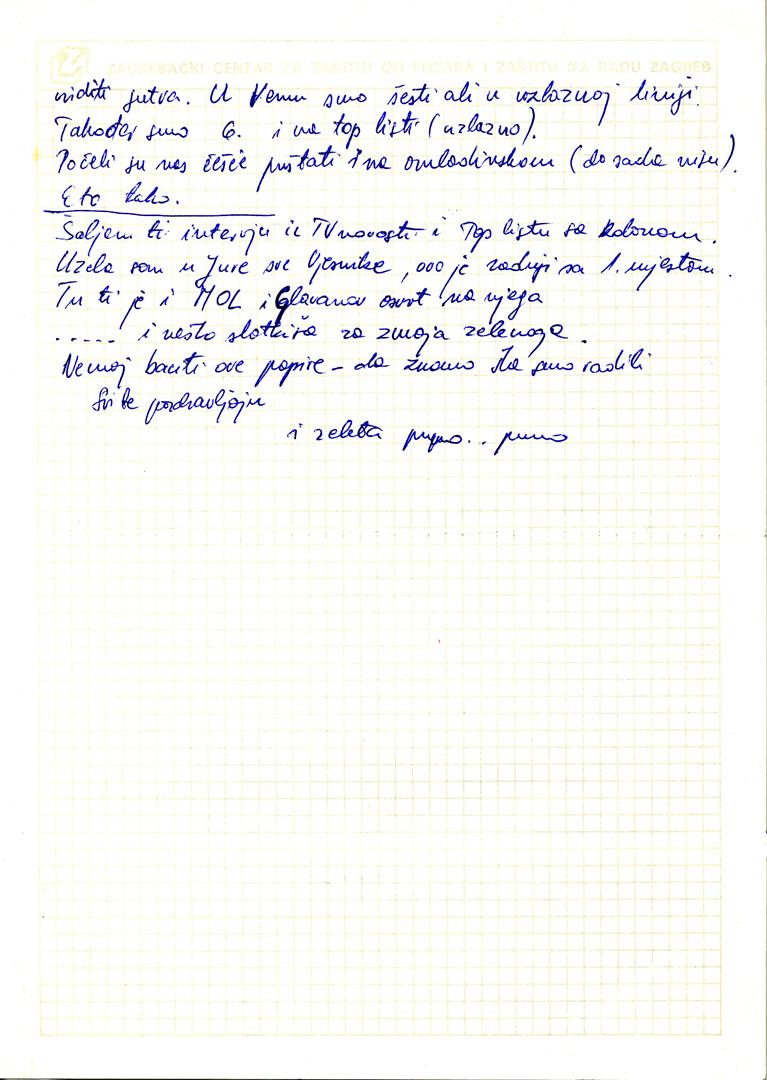 ZAGREBAČKI CENTAR ZA ZAŠTITU OD POŽARA I ZAŠTITU NA RADU ZAGREB
viditi jutra. U Venu smo šesti ali u uzlaznoj liniji.
Također smo 6. i na top listi (uzlazno).
Počeli su nas češće puštati i na omladinskom (do sada nisu).
Eto tako.
Šaljem ti intervju iz TV novosti i Top listu sa
Uzela sam u Jure sve Vjesnike, ovo je zadnji sa 1. mjestom.
Tu ti je i MOL i Glavanov osvrt na njega
..... i nešto slatkiša za zmaja zelenoga.
Nemoj baciti ove papire – da znamo šta smo radili
Svi te pozdravljaju
i puno.. puno